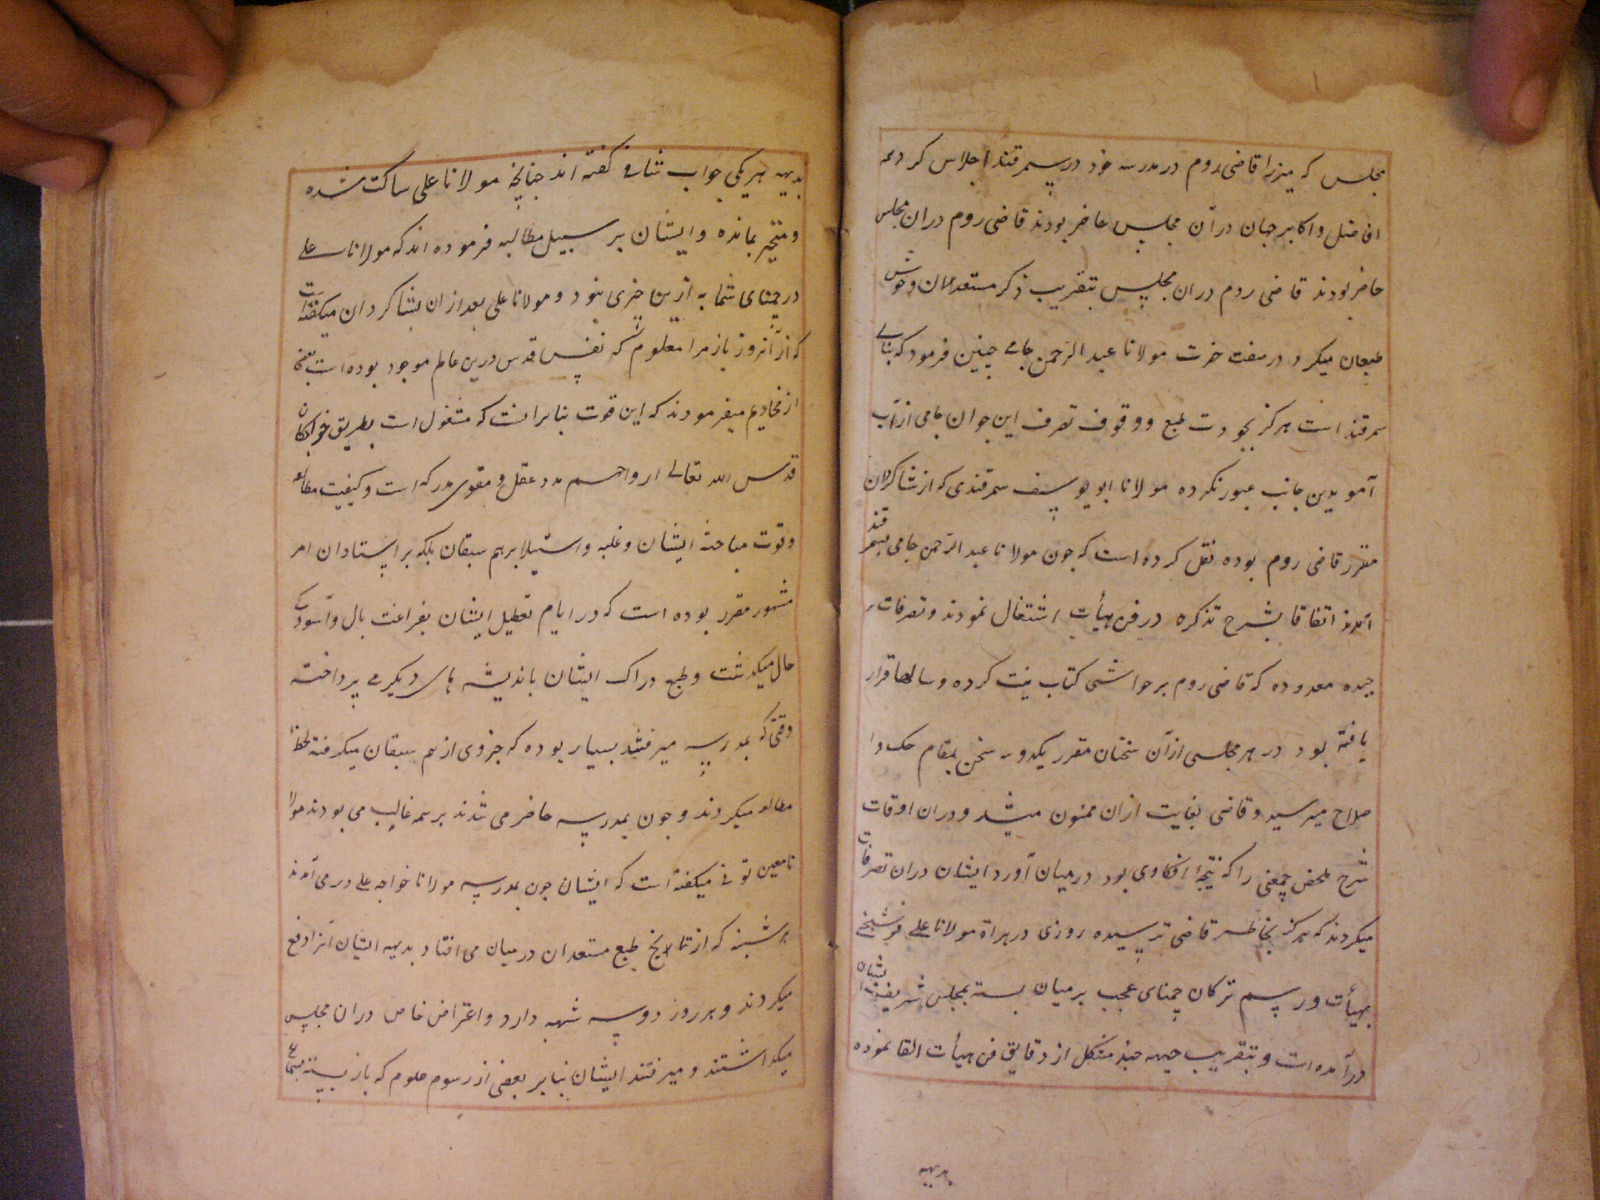 مجلس که میرزا قاضی روم در مدرسه خود در سمرقند اجلاس کرده همه
افاضل و اکابر جهان در آن مجلس حاضر بودند قاضی روم دران مجلس
حاضر بودند قاضی روم دران مجلس بتقریب ذکر مستعدان و خوش
طبعان میکرد در صفت حضرت مولانا عبد الرحمن جامی چنین فرمود که بنای
سمرقند است هرگز بجودت طبع و وقوف تصرف این جوان جامی از آب
آمو بدین جانب عبور نکرده مولانا ابو یوسف سمرقندی که از شاکردان
مقرر قاضی روم بوده نقل کرده است که چون مولانا عبد الرحمن جامی بسمرقند
آمدند اتفاقا بشرح تذکره در فن هیأت اشتغال نمودند و تصرفات
چیده معدوده که قاضی روم بر حواشی کتاب ثبت کرده و سالها قرار
یافته بود در هر مجلسی از آن سخنان مقرر یکدو سخن بمقام حک و ا
صلاح میرسید و قاضی بغایت ازان ممنون میشد و دران اوقات
شرح ملخص چغمنی را که نتیجه افکار وی بود درمیان آورد ایشان دران تصرفات
میکردند که هرگز بخاطر قاضی نرسیده روزی در هراة مولانا علی قوشجی
بهیأت و رسم ترکان چمتای عجب بر میان بسته بمجلس شریف ایشان
درآمده است و بتقریب شبهه چند مشکل از دقایق فن هیأت القا نموده
بدیهه
بدیهه هریکی جواب شافی گفته اند چنانچه مولانا علی ساکت شده
و متحیر بمانده و ایشان بر سبیل مطالبه فرموده اند که مولانا علی
در چمتای شما به ازین چیزی نبود و مولانا علی بعد ازان بشاگردان میگفته است
که از آنروز باز مرا معلوم شد که نفس قدس درین عالم موجود بوده است بعضی
از مخادیم میفرمودند که این قوت بنابر آنست که مشغول است بطریق خواجکان
قدس الله تعالی ارواحهم مدد عقل و مقوی مدرکه است و کیفیت مطالعه
و قوت مباحثه ایشان و غلبه و استیلا بر هم سبقان بلکه بر استادان امر
مشهور مقرر بوده است که در ایام تعطیل ایشان بفراغت بال و آسودگی
حال میگذشت و طبع دراک ایشان باندیشه های دیگر می پرداخته
وقتی که بمدرسه میرفتند بسیار بوده که جزوی از هم سبقان میگرفته لحظه
مطالعه میکردند و چون بمدرسه حاضر می شدند بر همه غالب می بودند مولا
نا معین تونی میگفته است که ایشان چون بمدرسه مولانا خواجه علی درمی آمدند
هر شبهه که از نتایج طبع مستعدان درمیان می افتاد بدیهه ایشان آنرا دفع
میکردند و هر روز دو سه شبهه دارد و اعتراض خاص دران مجلس
میکذاشتند و میرفتند ایشان بنابر بعضی از رسوم علوم که باز بسته بسماع